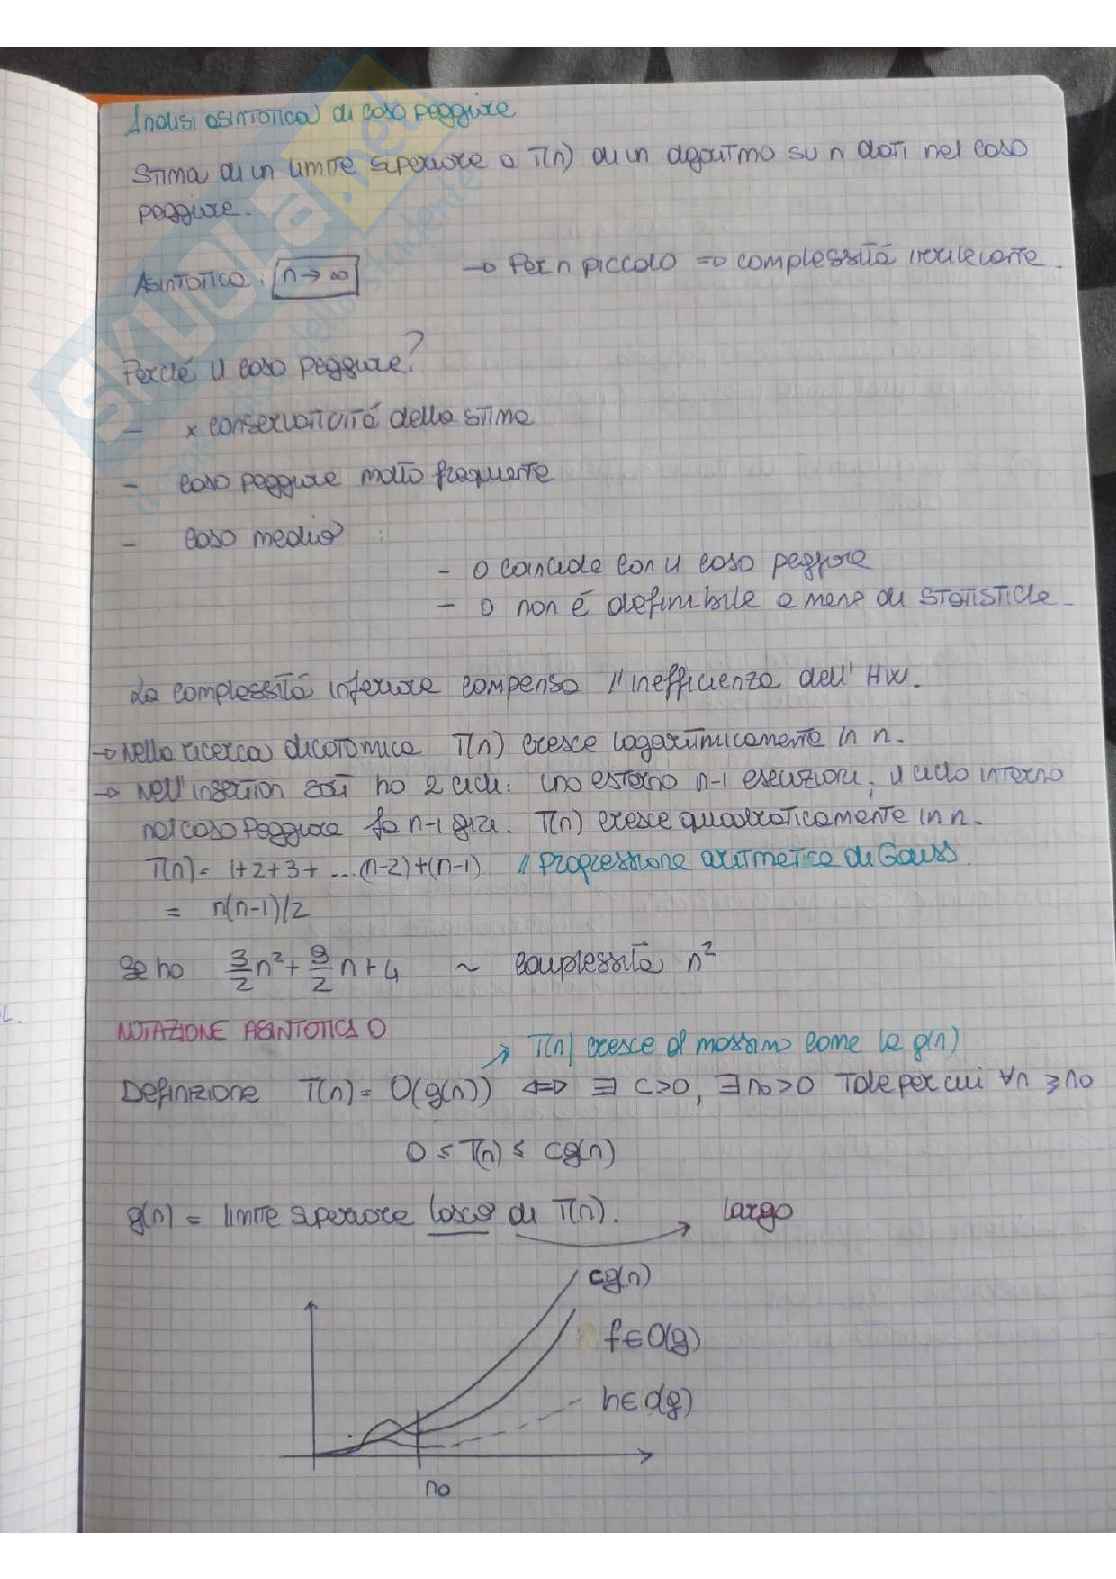 Analisi asintotica di caso peggiore
Stima di un limite superiore a T(n) di un algoritmo su n dati nel caso
peggiore.
Asintotico: n→∞ → Per n piccolo ⇒ complessità irrilevante.
Perché il caso peggiore?
- x conservatività della stima
- caso peggiore molto frequente
- caso medio:
- o coincide con il caso peggiore
- o non è definibile a meno di statistiche
La complessità inferiore compensa l'inefficienza dell'HW.
→ Nella ricerca dicotomica T(n) cresce logaritmicamente in n.
→ Nell'insertion sort ho 2 cicli: uno esterno n-1 esecuzioni, il ciclo interno
nel caso peggiore fa n-1 giri. T(n) cresce quadraticamente in n.
T(n)= 1+2+3+ ...(n-2)+(n-1) // Progressione aritmetica di Gauss
= n(n-1)/2
Se ho 3/2 n² + 9/2 n + 4 ~ complessità n²
NOTAZIONE ASINTOTICA O
→ T(n) cresce al massimo come la g(n)
Definizione T(n)= O(g(n)) ⇔ ∃ c>0, ∃ n0>0 tale per cui ∀n ≥ n0
0 ≤ T(n) ≤ cg(n)
g(n) = limite superiore lasco di T(n). → largo
cg(n)
f∈O(g)
h∈o(g)
n0
SKUOLA.net